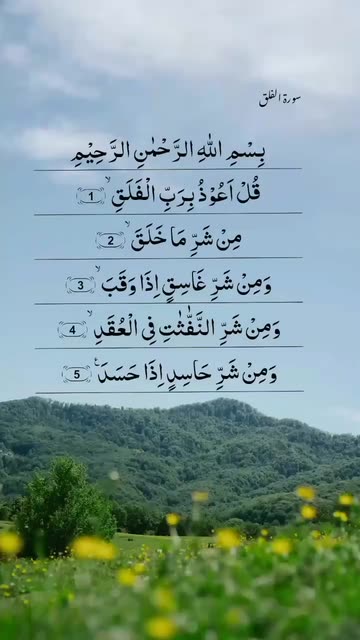 سورة الفلق
بِسْمِ اللهِ الرَّحْمٰنِ الرَّحِيْمِ
قُلْ اَعُوْذُ بِرَبِّ الْفَلَقِ ۙ 1
مِنْ شَرِّ مَا خَلَقَ ۙ 2
وَمِنْ شَرِّ غَاسِقٍ اِذَا وَقَبَ ۙ 3
وَمِنْ شَرِّ النَّفّٰثٰتِ فِى الْعُقَدِ ۙ 4
وَمِنْ شَرِّ حَاسِدٍ اِذَا حَسَدَ ۧ 5